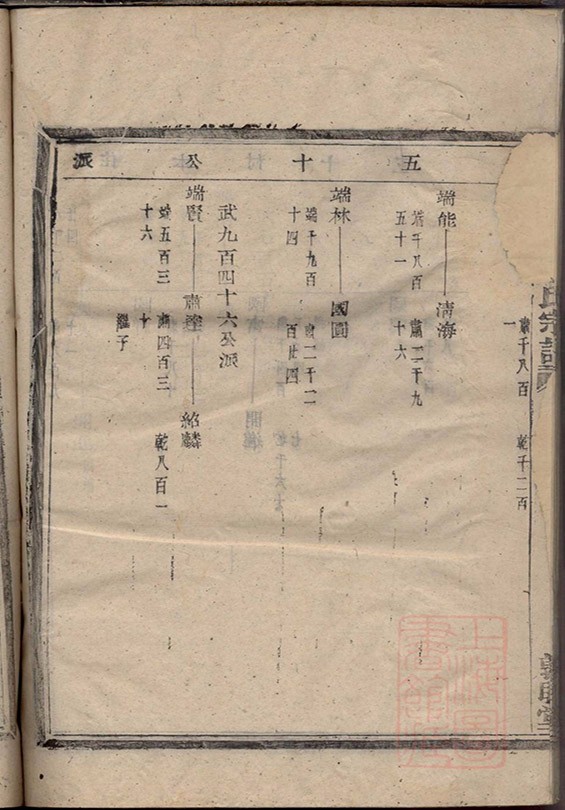 氏宗譜
五十公派
肅千八百一
乾千二百
端能
清海
端千八百五十一
肅二千九十六
端林
國園
端千九百十四
肅二千二百廿四
武九百四十六公派
端賢
肅達
紹麟
端五百三十六
肅四百三十
繼子
乾八百一
上海圖書館藏